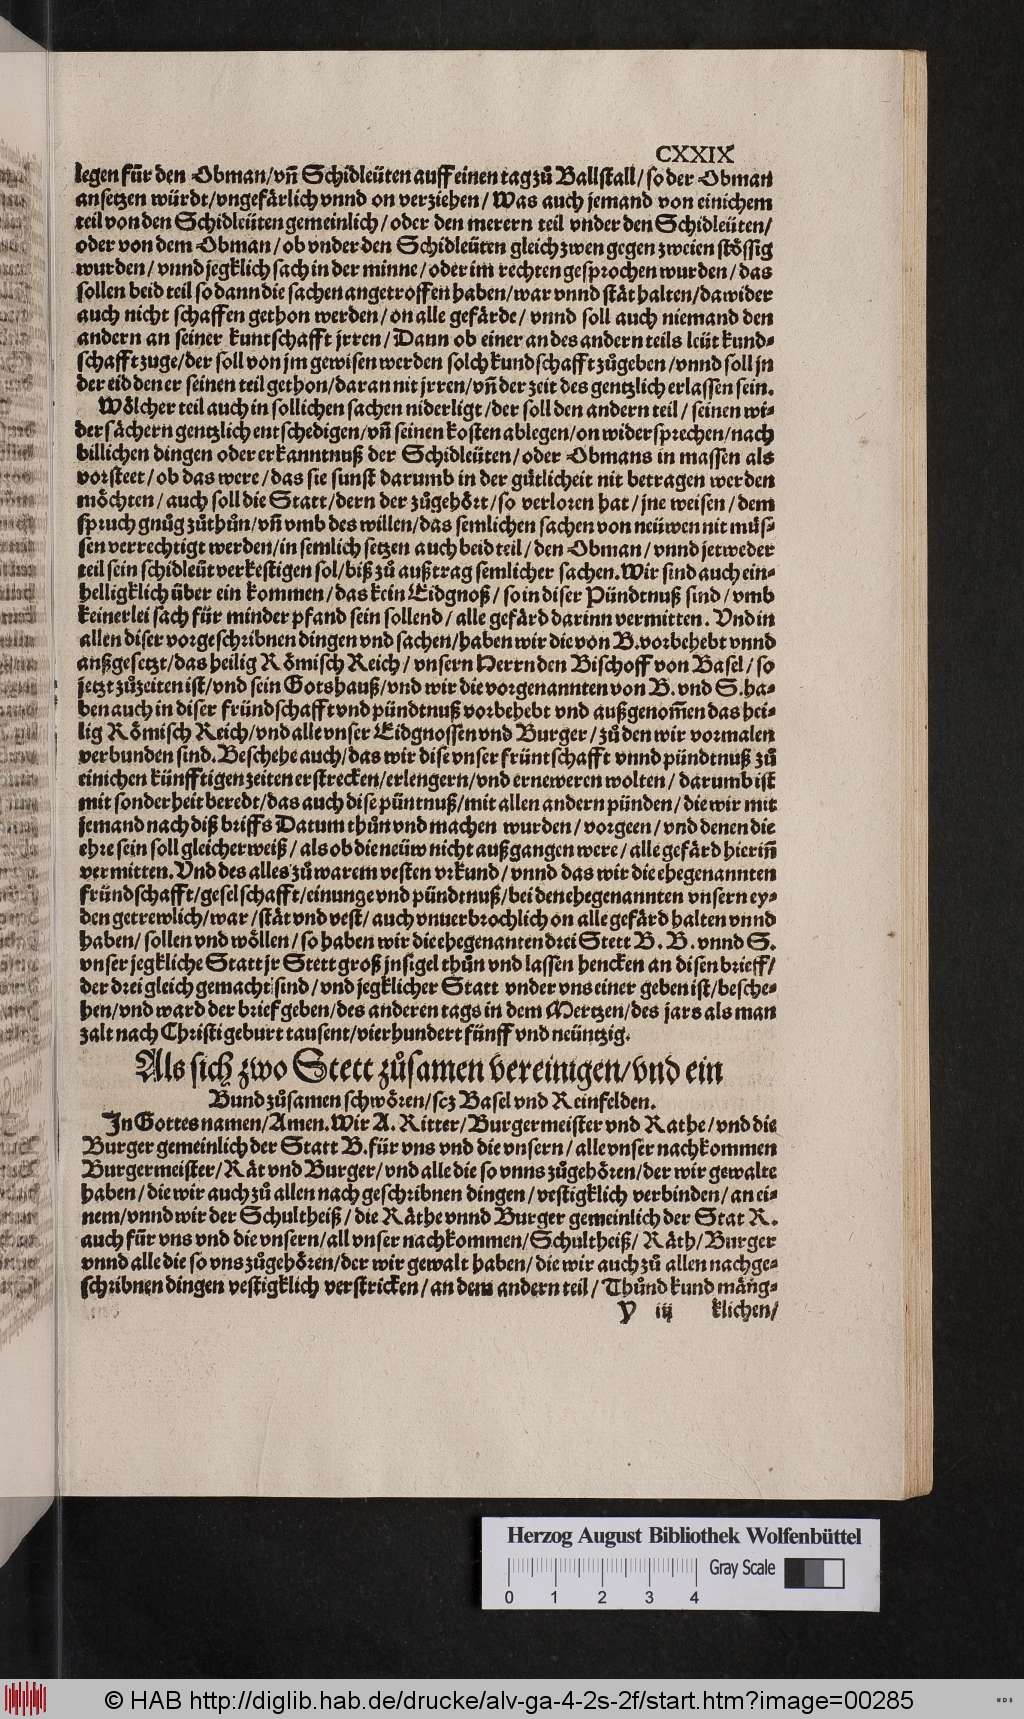 CXXIX
legen für den Obman/vn̄ Schidleüten auff einen tag zů Ballstall/so der Obman
ansetzen würdt/vngefärlich vnnd on verziehen/Was auch jemand von einichem
teil von den Schidleüten gemeinlich/oder den merern teil vnder den Schidleüten/
oder von dem Obman/ob vnder den Schidleüten gleich zwen gegen zweien stössig
wurden/vnnd jegklich sach in der minne/oder im rechten gesprochen wurden/das
sollen beid teil so dann die sachen angetroffen haben/war vnnd stät halten/da wider
auch nicht schaffen gethon werden/on alle gefärde/vnnd soll auch niemand den
andern an seiner kuntschafft jrren/Dann ob einer an des andern teils leüt kund-
schafft zuge/der soll von jm gewisen werden solch kundschafft zůgeben/vnnd soll jn
der eid den er seinen teil gethon/daran nit jrren/vn̄ der zeit des gentzlich erlassen sein.
Wölcher teil auch in sollichen sachen niderligt/der soll den andern teil/seinen wi-
dersächern gentzlich entschedigen/vn̄ seinen kosten ablegen/on widersprechen/nach
billichen dingen oder erkanntnuß der Schidleüten/oder Obmans in massen als
vorsteet/ob das were/das sie sunst darumb in der gůtlicheit nit betragen werden
möchten/auch soll die Statt/dern der zůgehört/so verloren hat/jne weisen/dem
spruch gnůg zůthůn/vn̄ vmb des willen/das semlichen sachen von neüwen nit müs-
sen verrechtigt werden/in semlich setzen auch beid teil/den Obman/vnnd jetweder
teil sein schidleüt verkestigen sol/biß zů außtrag semlicher sachen. Wir sind auch ein-
helligklich über ein kommen/das kein Eidgnoß/so in diser Pündtnuß sind/vmb
keinerlei sach für minder pfand sein sollend/alle gefärd darinn vermitten. Vnd in
allen diser vorgeschribnen dingen vnd sachen/haben wir die von B. vorbehebt vnnd
anßgesetzt/das heilig Römisch Reich/vnsern Herrn den Bischoff von Basel/so
jetzt zůzeiten ist/vnd sein Gotshauß/vnd wir die vorgenannten von B. vnd S. ha-
ben auch in diser fründschafft vnd pündtnuß vorbehebt vnd außgenom̄en das hei-
lig Römisch Reich/vnd alle vnser Eidgnossen vnd Burger/zů den wir vormalen
verbunden sind. Beschehe auch/das wir dise vnser früntschafft vnnd pündtnuß zů
einichen künfftigen zeiten erstrecken/erlengern/vnd erneweren wolten/darumb ist
mit sonderheit beredt/das auch dise püntnuß/mit allen andern pünden/die wir mit
jemand nach diß briffs Datum thůn vnd machen wurden/vorgeen/vnd denen die
ehre sein soll gleicherweiß/als ob die neüw nicht außgangen were/alle gefärd hierin̄
vermitten. Vnd des alles zů warem vesten vrkund/vnnd das wir die ehegenannten
fründschafft/geselschafft/einunge vnd pündtnuß/bei den ehegenannten vnsern ey-
den getrewlich/war/stät vnd vest/auch vnuerbrochlich on alle gefärd halten vnnd
haben/sollen vnd wöllen/so haben wir die ehegenanten drei Stett B. B. vnnd S.
vnser jegkliche Statt jr Stett groß jnsigel thůn vnd lassen hencken an disen brieff/
der drei gleich gemacht sind/vnd jegklicher Statt vnder vns einer geben ist/besche-
hen/vnd ward der brief geben/des anderen tags in dem Mertzen/des jars als man
zalt nach Christi geburt tausent/vierhundert fünff vnd neüntzig.
Als sich zwo Stett zůsamen vereinigen/vnd ein
Bund zůsamen schwören/scz Basel vnd Reinfelden.
In Gottes namen/Amen. Wir A. Ritter/Burgermeister vnd Rathe/vnd die
Burger gemeinlich der Statt B. für vns vnd die vnsern/alle vnser nachkommen
Burgermeister/Rät vnd Burger/vnd alle die so vnns zůgehören/der wir gewalte
haben/die wir auch zů allen nachgeschribnen dingen/vestigklich verbinden/an ei-
nem/vnnd wir der Schultheiß/die Räthe vnnd Burger gemeinlich der Stat R.
auch für vns vnd die vnsern/all vnser nachkommen/Schultheiß/Räth/Burger
vnnd alle die so vns zůgehören/der wir gewalt haben/die wir auch zů allen nachge-
schribnen dingen vestigklich verstricken/an dem andern teil/Thůnd kund mäng-
Y iij klichen/
Herzog August Bibliothek Wolfenbüttel
0 1 2 3 4 Gray Scale
© HAB http://diglib.hab.de/drucke/alv-ga-4-2s-2f/start.htm?image=00285